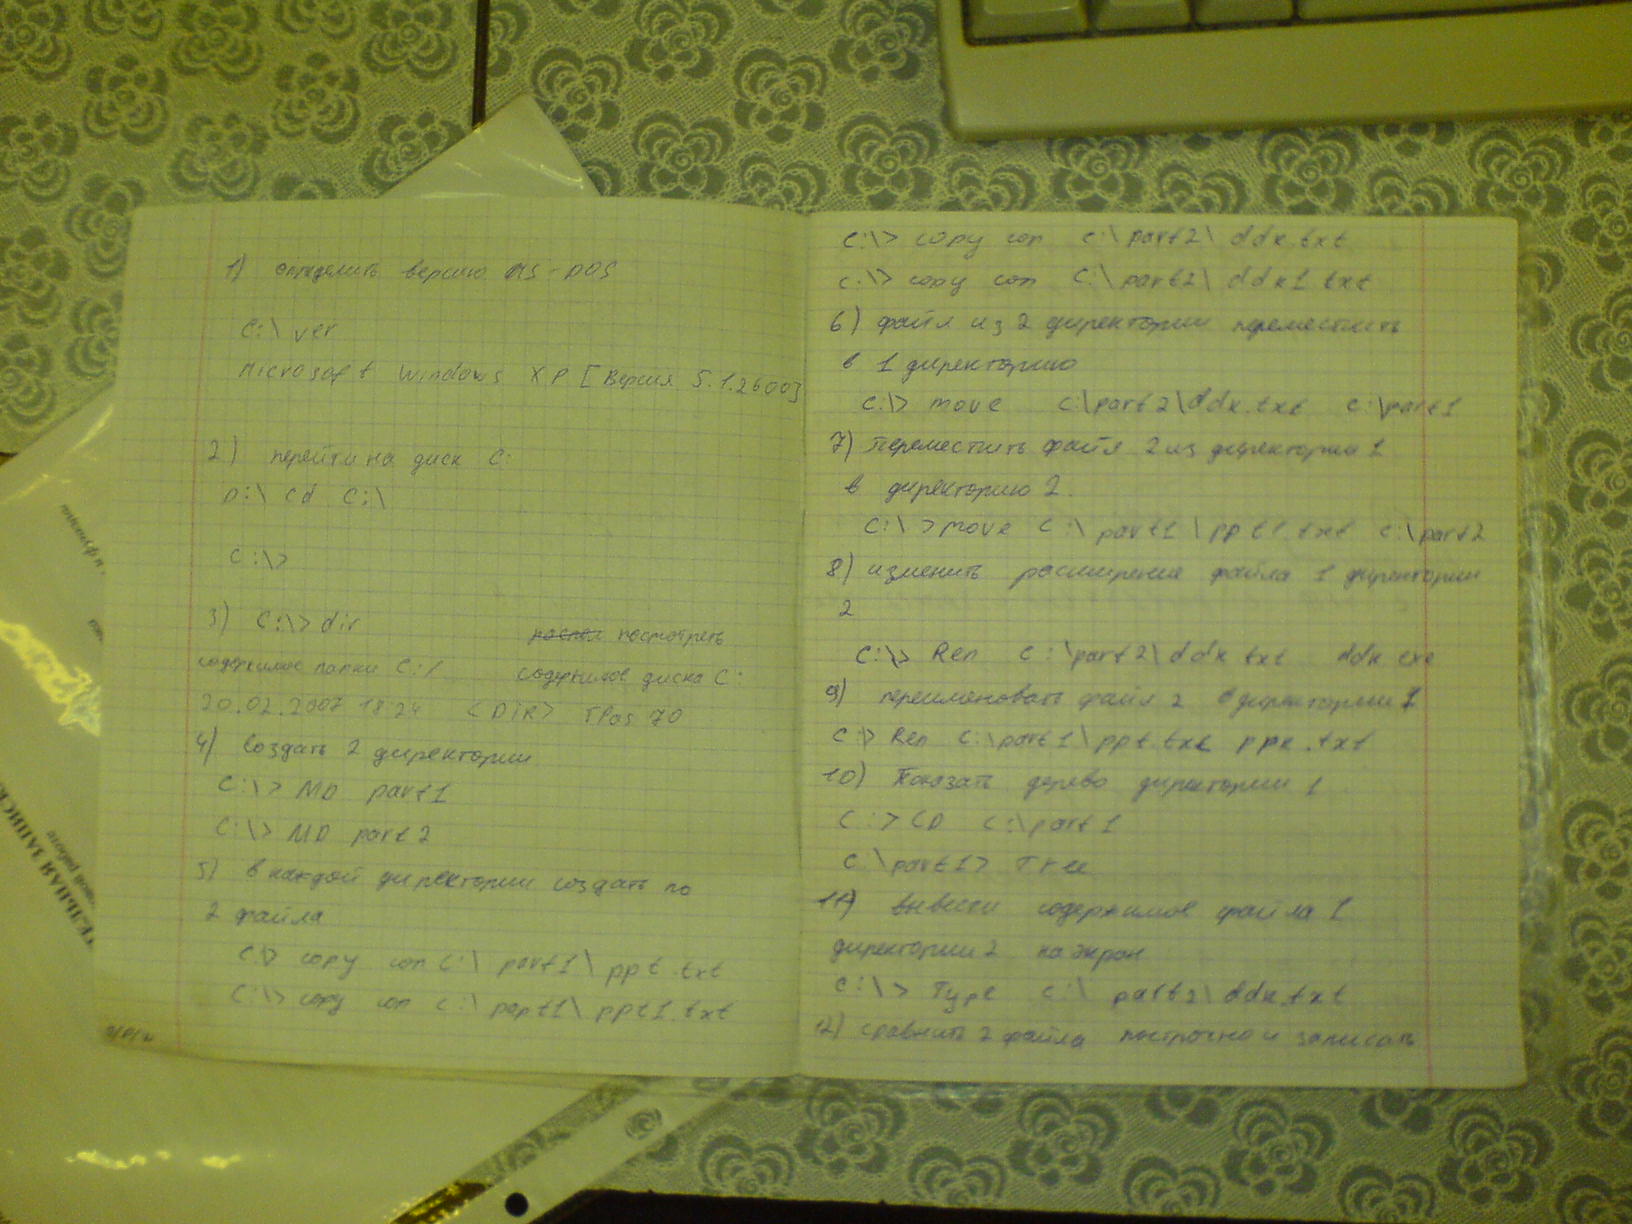 1) определить версию MS-DOS
C:\ ver
Microsoft Windows XP [Версия 5.1.2600]
2) перейти на диск C:
D:\ cd C:\
C:\>
3) C:\> dir посмотреть
содержимое папки C:/ содержимое диска C:
20.02.2007 18:24 <DIR> TPas 70
4) Создать 2 директории
C:\> MD part1
C:\> MD part2
5) в каждой директории создать по
2 файла
C:\> copy con C:\ part1\ ppt.txt
C:\> copy con c:\ papt1\ ppt1.txt
C:\> copy con c:\ part2\ ddx.txt
c:\> copy con C:\ part2\ ddx1.txt
6) файл из 2 директории переместить
в 1 директорию
C:\> move c:\part2\ddx.txt c:\part1
7) переместить файл 2 из директории 1
в директорию 2.
C:\ > move C:\ part1 \ ppt1.txt c:\part2
8) изменить расширение файла 1 директории
2
C:\> Ren C:\part2\ddx.txt ddx.exe
9) переименовать файл 2 в директории 1
C:> Ren C:\part1\ppt.txt ppx.txt
10) Показать дерево директории 1
C:> CD C:\part1
C:\part1> Tree
11) вывести содержимое файла 1
директории 2 на экран
C:\> Type c:\ part2\ ddx.txt
12) сравнить 2 файла построчно и записать
ТЕЛЬНАЯ ЗАПИСК